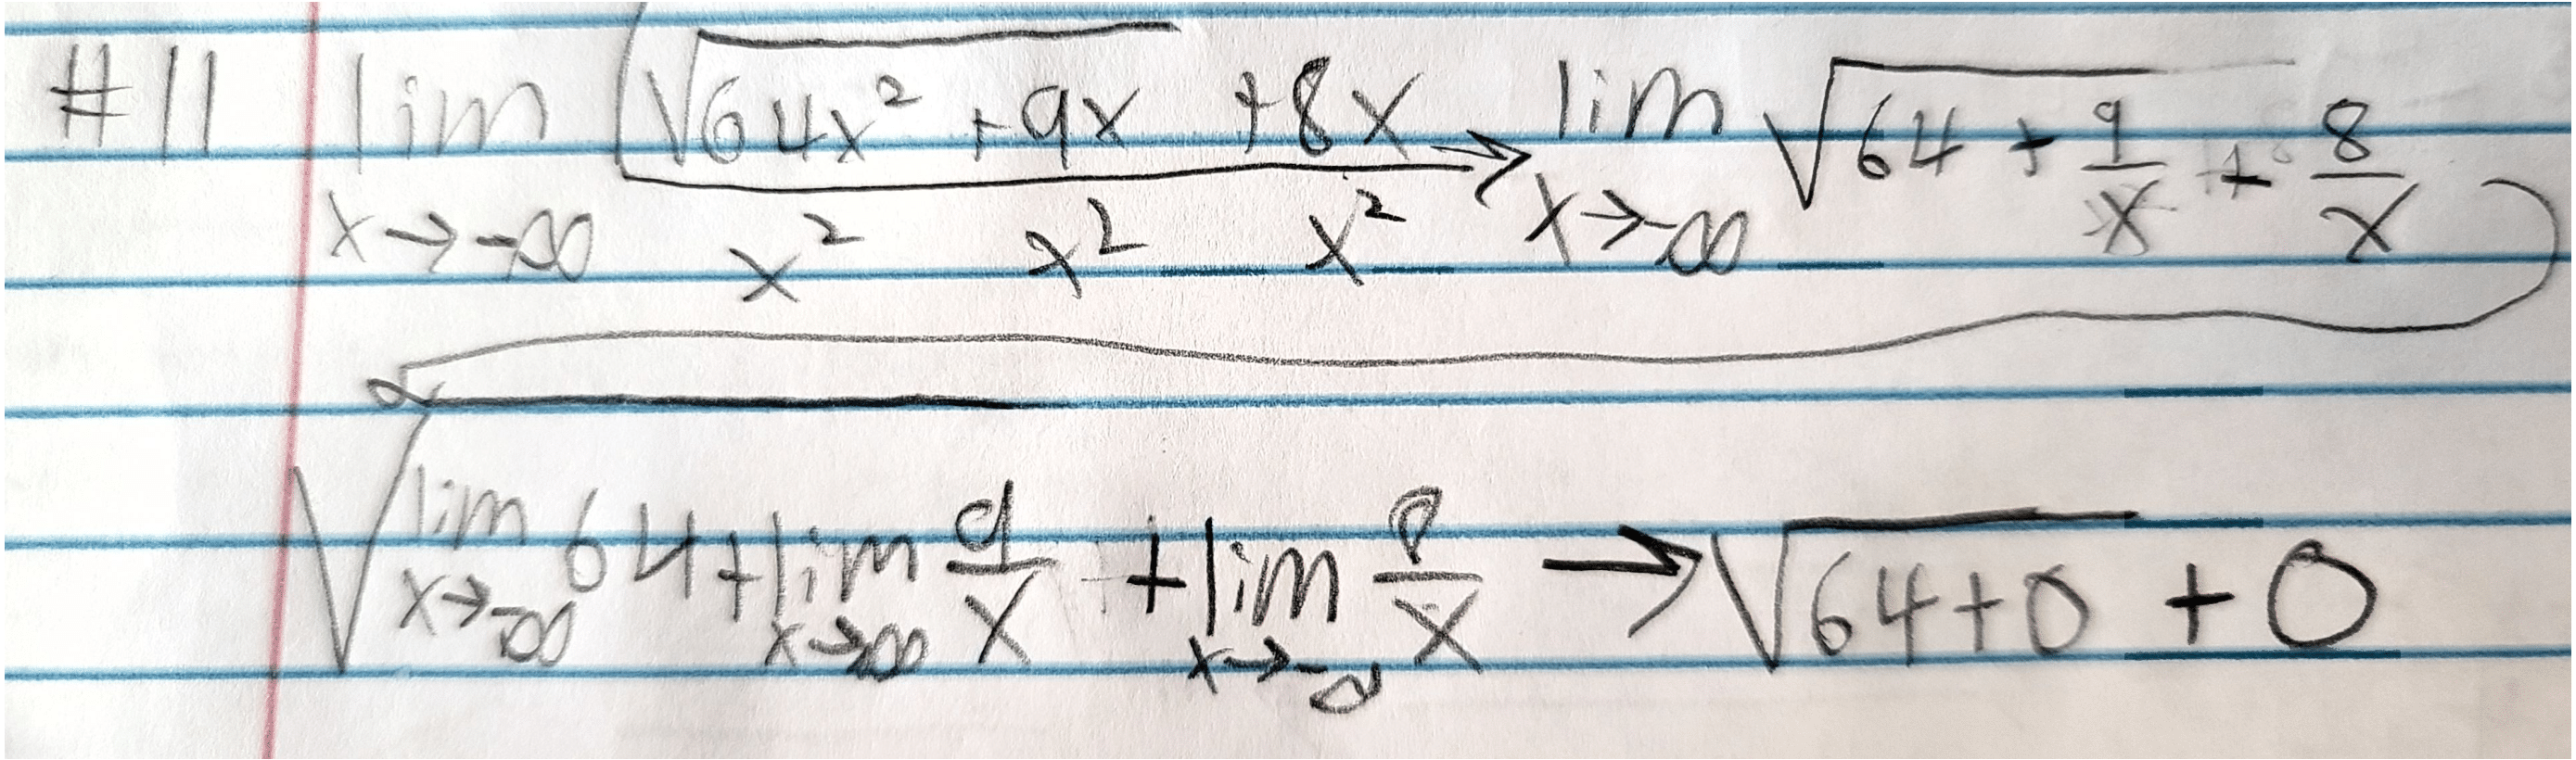 #11 lim x→-∞ (√(64x² + 9x) + 8x)/(x² x² x²) → lim x→-∞ √(64 + 9/x) + 8/x
√(lim x→-∞ 64 + lim x→-∞ 9/x) + lim x→-∞ 8/x → √(64+0) + 0